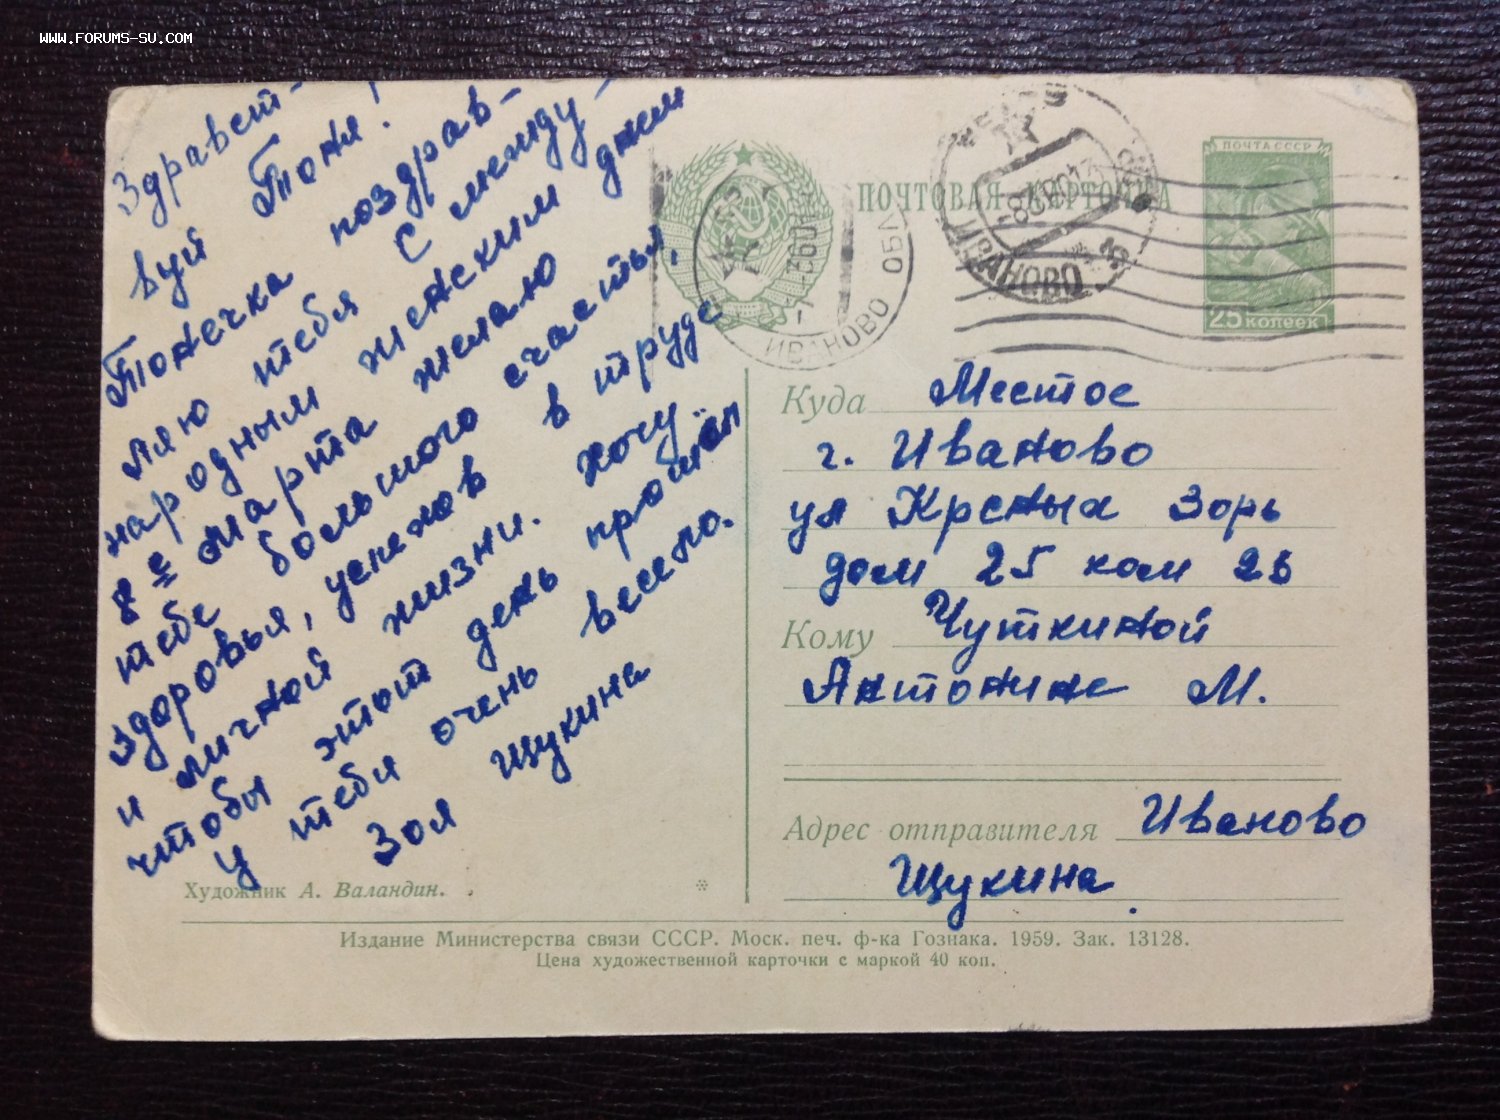 WWW.FORUMS-SU.COM
Здравст-
вуй Тоня!
Тонечка поздрав-
ляю тебя с между-
народным женским днем
8е марта желаю
тебе большого счастья,
здоровья, успехов в труде
и личной жизни. Хочу
чтобы этот день прошёл
у тебя очень весело.
Зоя Щукина
Художник А. Валандин.
ПОЧТОВАЯ КАРТОЧКА
ИВАНОВО ОБЛ
ИВАНОВО
ПОЧТА СССР
25 копеек
Куда Местое
г. Иваново
ул Крсных Зорь
дом 25 ком 26
Кому Чуткиной
Антонине М.
Адрес отправителя Иваново
Щукина
Издание Министерства связи СССР. Моск. печ. ф-ка Гознака. 1959. Зак. 13128.
Цена художественной карточки с маркой 40 коп.